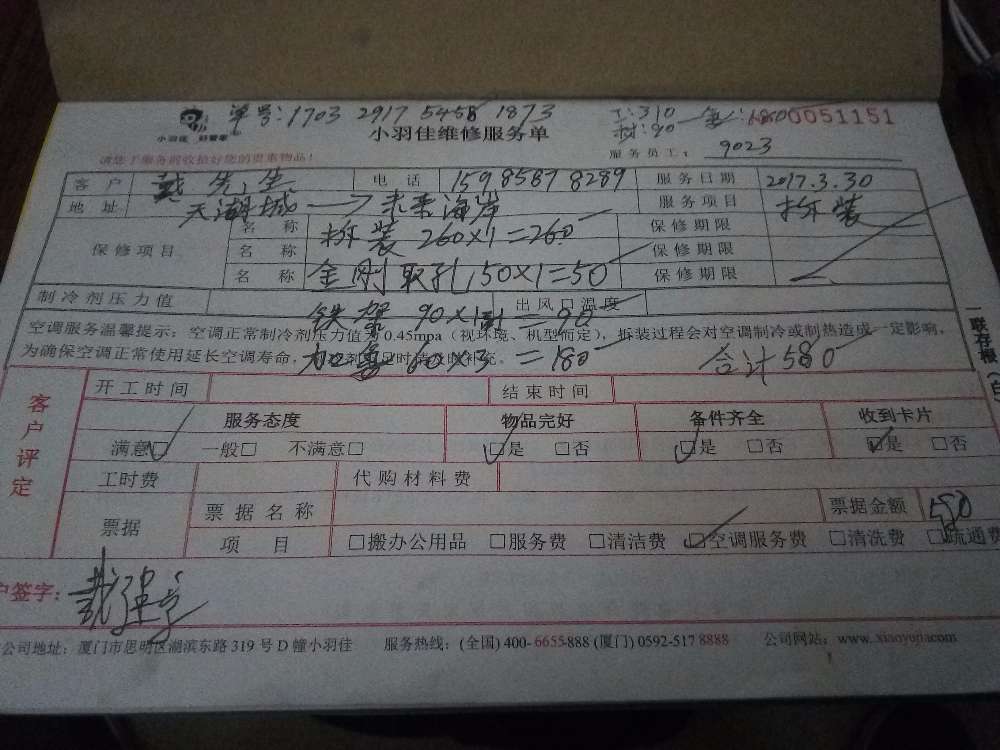 单号:1703 2917 5458 1873
工:310
材:90
0051151
小羽佳 好管家
小羽佳维修服务单
服务员工: 9023
请您于服务前收拾好您的贵重物品!
客户 戴先生 电话 15985878289 服务日期 2017.3.30
地址 天湖城→未来海岸 服务项目 拆装
保修项目 名称 拆装 260×1=260 保修期限
名称 保修期限
名称 金刚取孔 50×1=50 保修期限
制冷剂压力值 出风口温度
铁架 90×1=90
空调服务温馨提示:空调正常制冷剂压力值为0.45mpa(视环境、机型而定),拆装过程会对空调制冷或制热造成一定影响,
为确保空调正常使用延长空调寿命,
60×3=180 合计580
联存根(白)
客户评定
开工时间 结束时间
服务态度 物品完好 备件齐全 收到卡片
满意□ 一般□ 不满意□ □是 □否 □是 □否 □是 □否
工时费 代购材料费
票据 票据名称 票据金额 580
项目 □搬办公用品 □服务费 □清洁费 □空调服务费 □清洗费 □疏通费
户签字:
公司地址:厦门市思明区湖滨东路319号D幢小羽佳 服务热线:(全国)400-6655-888(厦门)0592-517 8888 公司网站:www.xiaoyujia.com